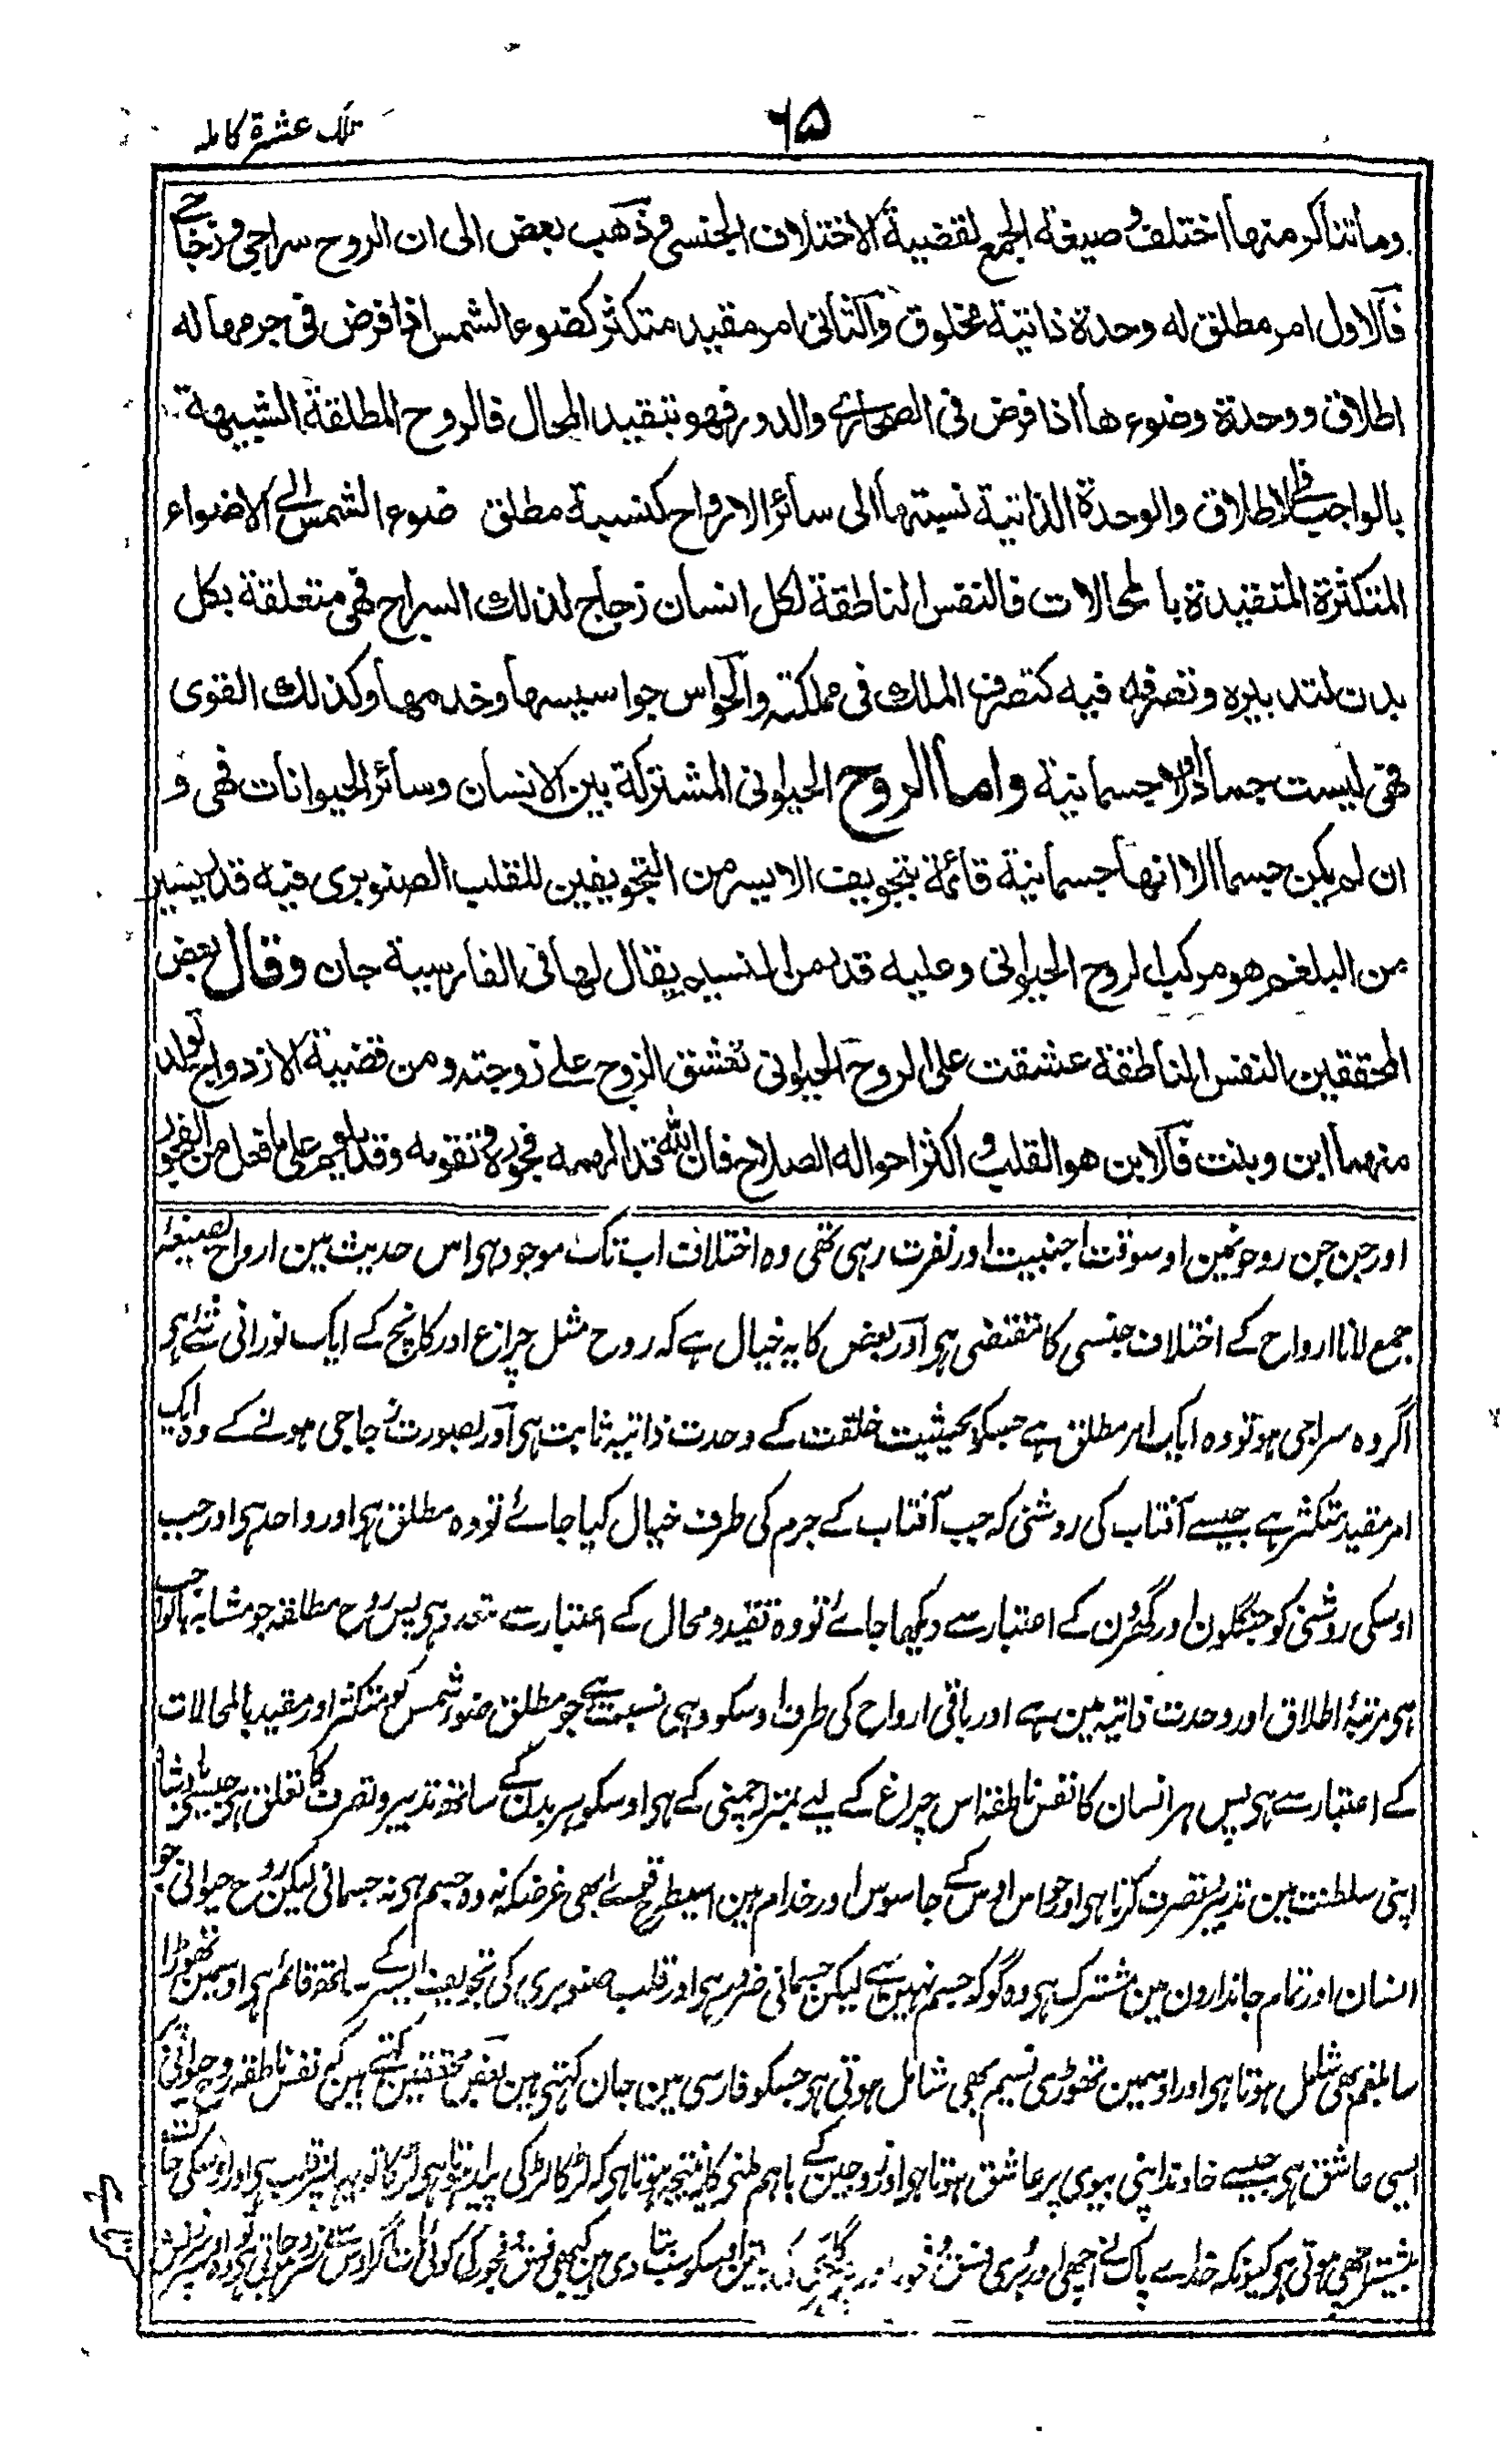 ۶۵
تلک عشرة کاملہ
وماتناکر منها اختلف و صیغة الجمع لقضیة الاختلاف الجنسی و ذهب بعض الی ان الروح سراجی و زجاجی
فالاول امر مطلق له وحدة ذاتیة مخلوق والثانی امر مقید متکثر کضوء الشمس اذا فرض فی جرمها له
اطلاق و وحدة وضوءها اذا فرض فی الصحاری والدور فهو بتقید المحال فالروح المطلقة الشبیهة
بالواجب فی الاطلاق والوحدة الذاتیة نسبتها الی سائر الارواح کنسبة مطلق ضوء الشمس الی الاضواء
المتکثرة المتقیدة بالمحالات فالنفس الناطقة لکل انسان زجاج لذلک السراج فهی متعلقة بکل
بدن لتدبیره وتصرفه فیه کتصرف الملک فی مملکته والحواس جواسیسها وخدمها وکذلک القوی
فهی لیست جسما ولا جسمانیة واما الروح الحیوانی المشترکة بین الانسان وسائر الحیوانات فهی و
ان لم یکن جسما الا انها جسمانیة قائمة بتجویف الایسر من التجویفین للقلب الصنوبری فیه قدر یسیر
من البلغم هو مرکب الروح الحیوانی وعلیه قدر من النسیم یقال لها فی الفارسیة جان وقال بعض
المحققین النفس الناطقة عشقت علی الروح الحیوانی تعشق الزوج علی زوجته ومن قضیة الازدواج تولد
منهما ابن وبنت فالابن هو القلب و اکثر احواله الصلاح فان الله قد الهمه فجوره و تقویه وقد یلهم علی ما فعل من الفجور
اور جن جن روحونمین اوسوقت اجنبیت اور نفرت رہی تھی وہ اختلاف اب تک موجود ہی اس حدیث مین ارواح بصیغہ
جمع لانا ارواح کے اختلاف جنسی کا مقتضی ہی اور بعض کا یہ خیال ہے کہ روح مثل چراغ اور کانچ کے ایک نورانی شئے ہی
اگر وہ سراجی ہو تو وہ ایک امر مطلق ہے جسکو بحیثیت خلقت کے وحدت ذاتیہ ثابت ہی اور بصورت زجاجی ہونے کے وہ ایک
امر مقید متکثر ہے جیسے آفتاب کی روشنی کہ جب آفتاب کے جرم کی طرف خیال کیا جائے تو وہ مطلق ہی اور واحد ہی اور جب
اوسکی روشنی کو جنگلون اور گھرون کے اعتبار سے دیکھا جائے تو وہ تقید و محال کے اعتبار سے متعدد ہی پس روح مطلقہ جو مشابہ بالواجب
ہی مرتبۂ اطلاق اور وحدت ذاتیہ مین ہے اور باقی ارواح کی طرف اوسکو وہی نسبت ہے جو مطلق ضوء شمس کو متکثر اور مقید بالمحالات
کے اعتبار سے ہی پس ہر انسان کا نفس ناطقہ اس چراغ کے لیے بمنزلہ چمنی کے ہی اوسکو ہر بدن کے ساتھ تدبیر و تصرف کا تعلق ہی جیسا بادشاہ
اپنی سلطنت مین تدبیر و تصرف کرتا ہی اور حواس اوس کے جاسوس اور خدام ہین اسیطرح قوے بھی غرضکہ نہ وہ جسم ہی نہ جسمانی لیکن روح حیوانی جو
انسان اور تمام جاندارون مین مشترک ہی وہ گو کہ جسم نہین ہے لیکن جسمانی ضرور ہی اور قلب صنوبری کی تجویف ایسر کے ساتھ قائم ہی اوسمین تھوڑا
سا بلغم بھی شامل ہوتا ہی اور اوسمین تھوڑی نسیم بھی شامل ہوتی ہی جسکو فارسی مین جان کہتی ہین بعض محققین کہتے ہین کہ نفس ناطقہ روح حیوانی پر
ایسی عاشق ہی جیسے خاوند اپنی بیوی پر عاشق ہوتا ہی اور زوجین کے باہم ملنی کا یہ نتیجہ ہوتا ہی کہ لڑکا لڑکی پیدا ہوتا ہی لڑکا تو یہی قلب ہی اور اوسکی حالت
بیشتر اچھی ہوتی ہی کیونکہ خداے پاک نے اچھی اور بری فسق و فجور اور کی باتین اوسکو بتا دی ہین کبھی فسق و فجور کی کوئی بات اگر اوس سے سرزد ہو جاتی ہی تو وہ اوسپر